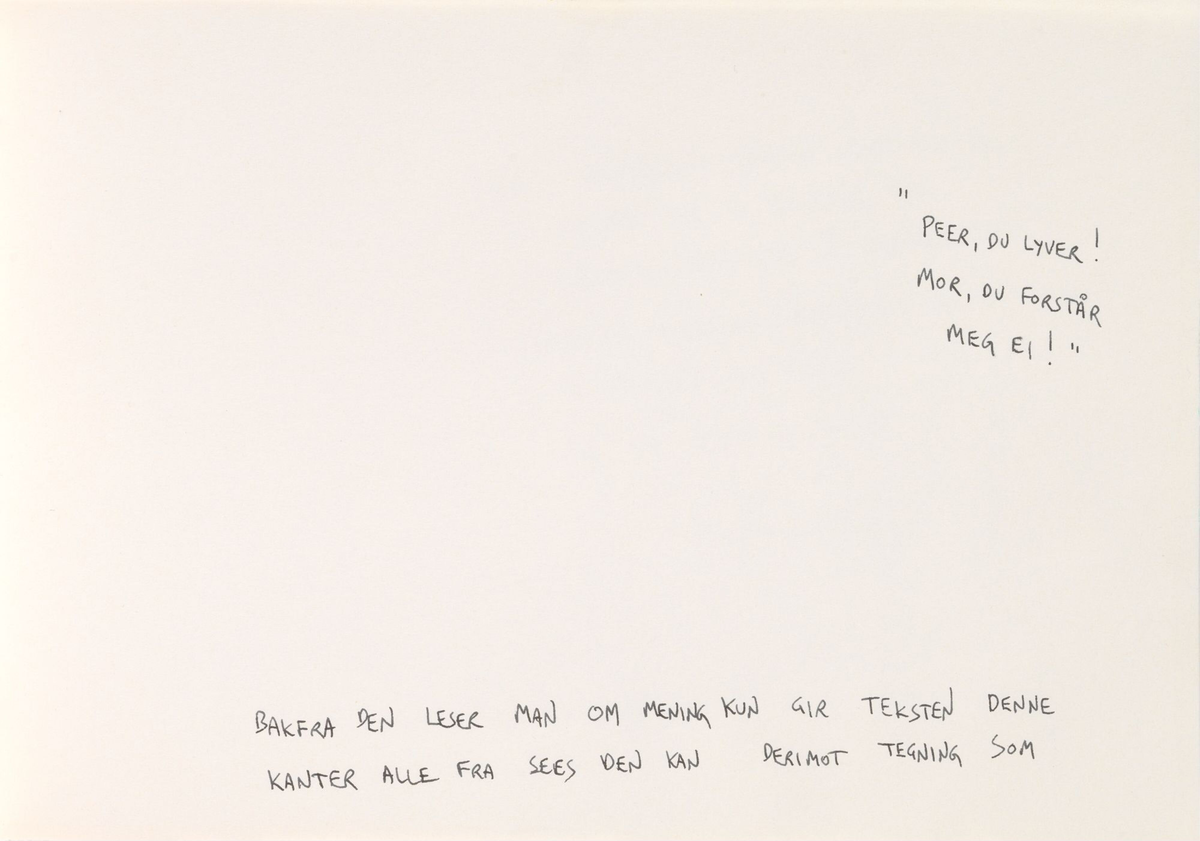 "
PEER, DU LYVER!
MOR, DU FORSTÅR
MEG EI!"
BAKFRA DEN LESER MAN OM MENING KUN GIR TEKSTEN DENNE
KANTER ALLE FRA SEES DEN KAN DERIMOT TEGNING SOM